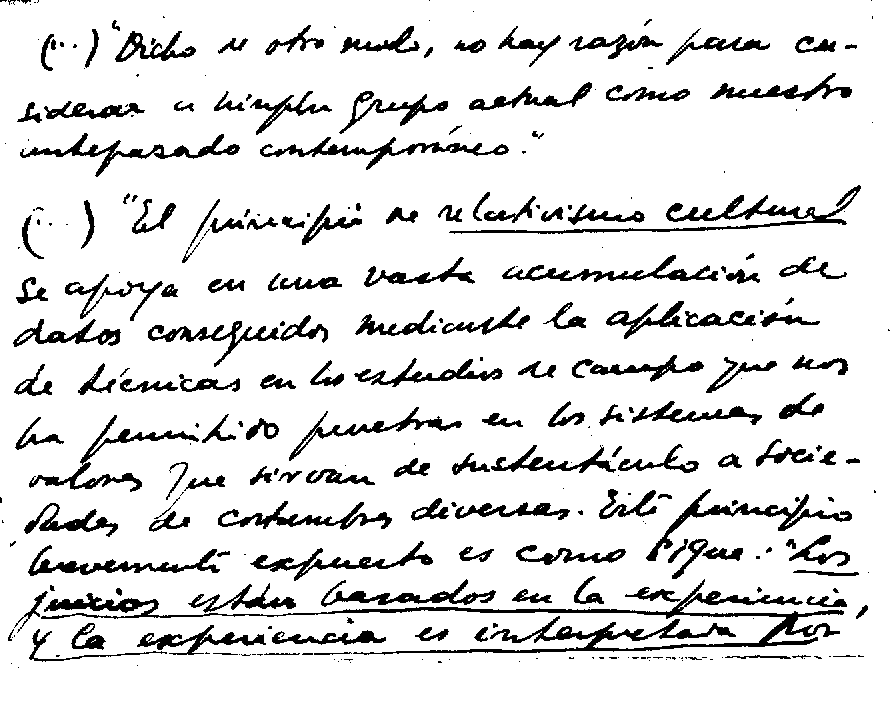 (...) "Dicho de otro modo, no hay razón para con-
siderar a ningún grupo actual como nuestro
antepasado contemporáneo."
(...) "El principio de relativismo cultural
se apoya en una vasta acumulación de
datos conseguidos mediante la aplicación
de técnicas en los estudios de campo que nos
ha permitido penetrar en los sistemas de
valores que sirvan de sustentáculo a socie-
dades de costumbres diversas. Este principio
brevemente expuesto es como sigue: "Los
juicios están basados en la experiencia,
y la experiencia es interpretada por